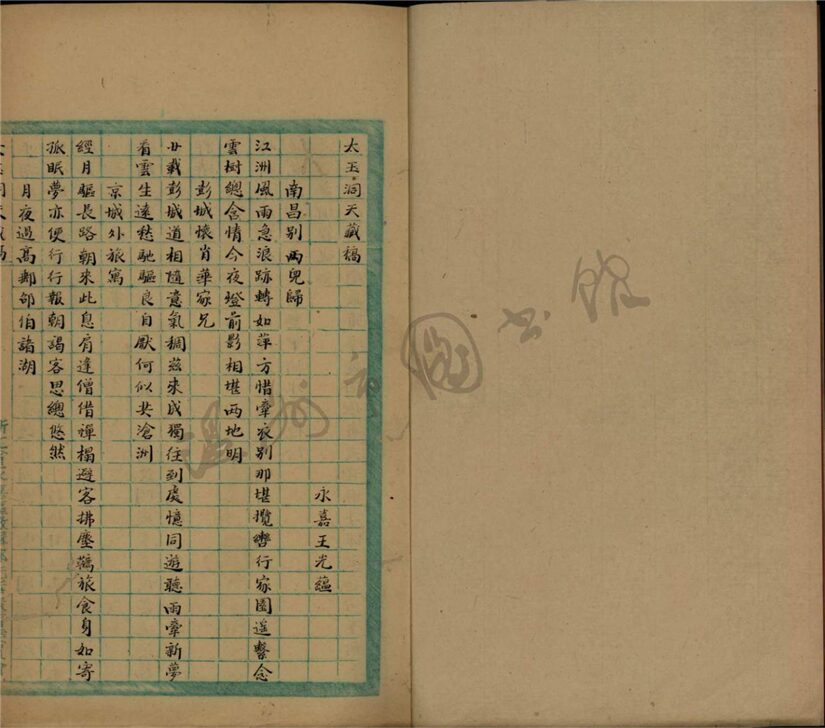 太玉洞天藏稿
永嘉王光蘊
南昌別兩兒歸
江洲風雨急浪跡轉如萍方惜牽衣別那堪攬轡行家園遥繫念
雲樹總含情今夜燈前影相堪兩地明
彭城懷肖華家兄
廿載彭城道相隨意氣稠茲來成獨往到處憶同遊聽雨牽新夢
看雲生遠愁馳驅良自厭何似共滄洲
京城外旅寓
經月驅長路朝來此息肩逢僧借禪榻避客拂塵韉旅食身如寄
孤眠夢亦便行行報朝謁客思總悠然
月夜過高郵邵伯諸湖
溫州市圖書館